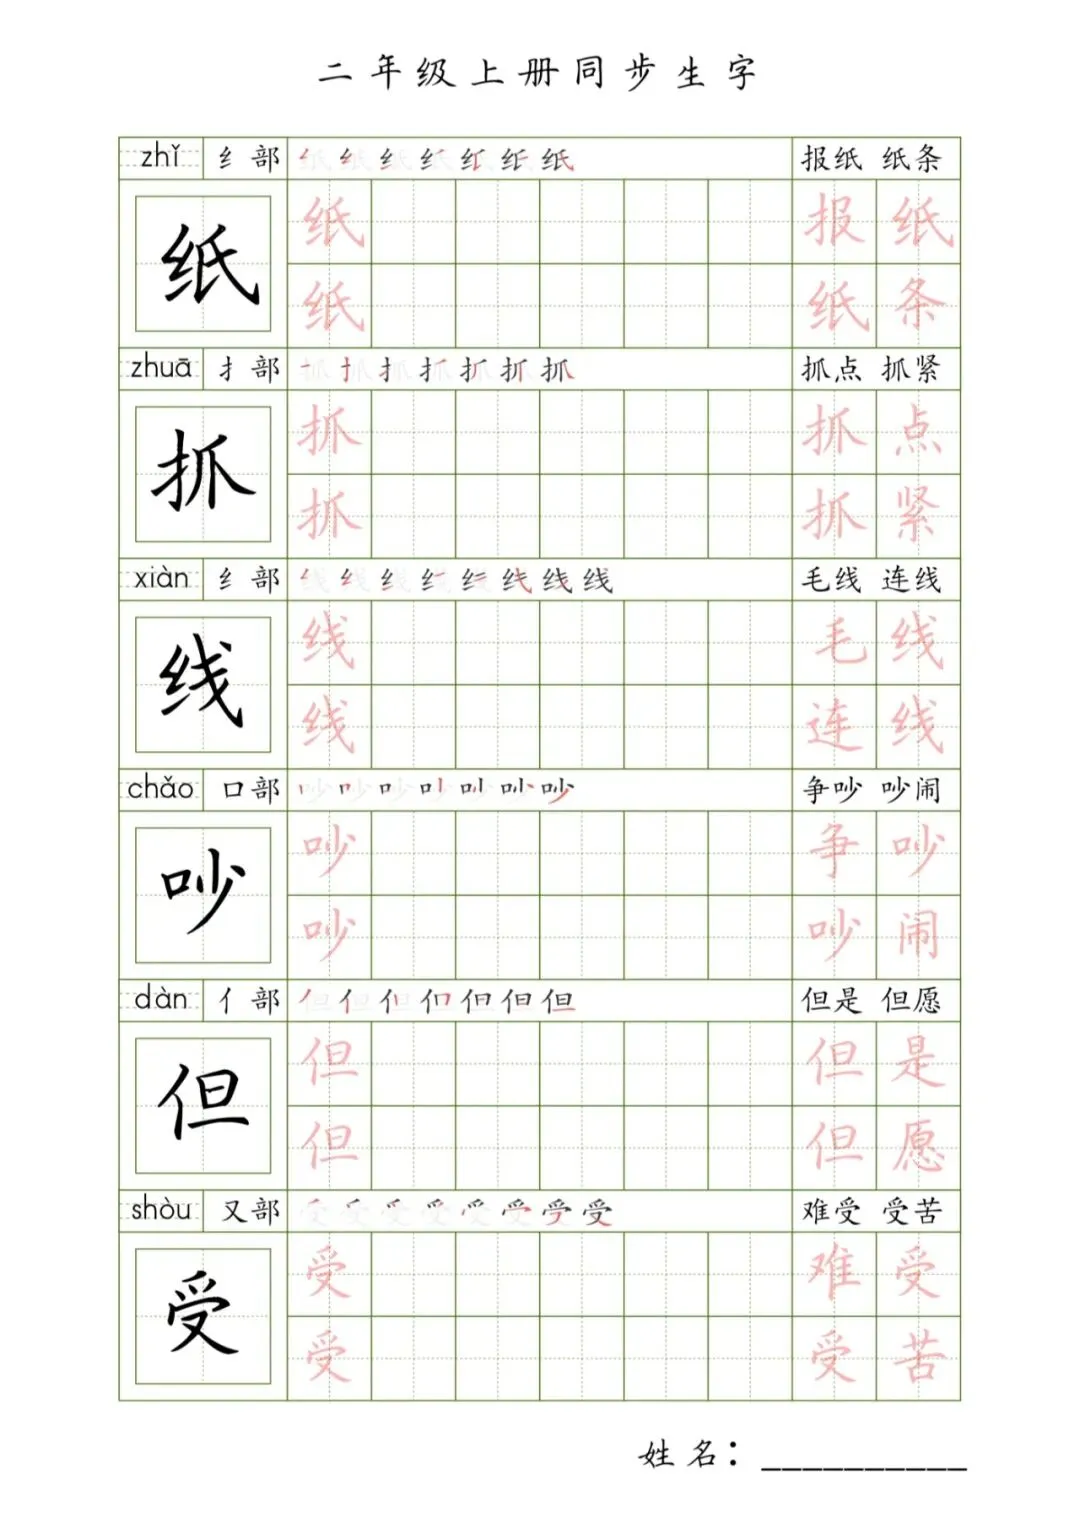 二年级上册同步生字
zhǐ 纟部 纸纸纸纸纸纸纸 报纸 纸条
纸 纸 报纸
纸 纸条
zhuā 扌部 抓抓抓抓抓抓抓 抓点 抓紧
抓 抓 抓点
抓 抓紧
xiàn 纟部 线线线线线线线线 毛线 连线
线 线 毛线
线 连线
chǎo 口部 吵吵吵吵吵吵吵 争吵 吵闹
吵 吵 争吵
吵 吵闹
dàn 亻部 但但但但但但但 但是 但愿
但 但 但是
但 但愿
shòu 又部 受受受受受受受受 难受 受苦
受 受 难受
受 受苦
姓名：__________